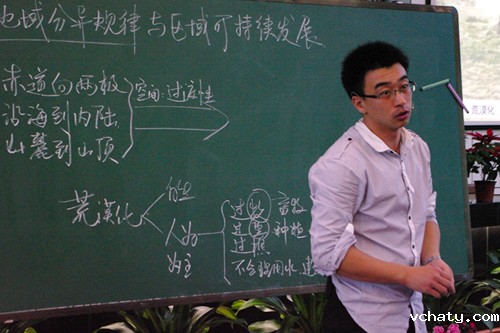 地域分异规律与区域可持续发展
赤道向两极
沿海到内陆
山麓到山顶
空间:过渡性
荒漠化
自然
人为
为主
过牧
过垦
过樵
不合理用水
畜牧
种植
荒漠化
vchaty.com